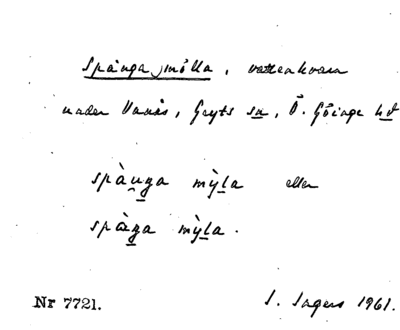 Spånga mölla, vattenkvarn
under Vanås, Gryts sn, Ö. Göinge hd
spàuŋa mỳla eller
spàŋa mỳla.
Nr 7721. I. Ingers 1961.